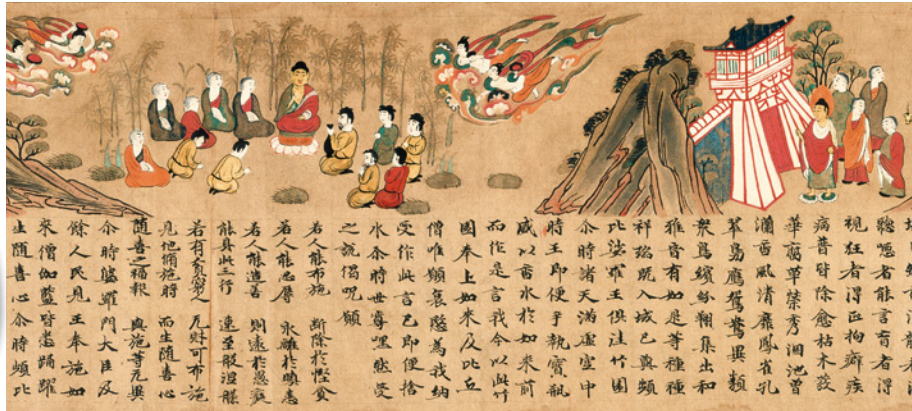 者能言盲者得
視狂者得正拘癖疾
病普皆除愈枯木發
華腐草榮秀涸池曾
瀾香風清靡鳳雀孔
翠鳬鴈鴛鴦異類
衆鳥繽紛翔集出和
雅音有如是等種種
祥瑞既入城已與頻
比娑羅王俱往竹園
尒時諸天滿虛空中
時王即便手執寶瓶
盛以香水於如來前
而作是言我今以此竹
園奉上如來及比丘
僧唯願哀愍為我納
受作此言已即便捨
水尒時世尊嘿然受
之說偈呪願
若人能布施　斷除於慳貪
若人能忍辱　永離於瞋恚
若人能造善　則遠於愚癡
能具此三行　速至般涅槃
若有貧窮人　无財可布施
見他脩施時　而生隨喜心
隨喜之福報　與施等无異
尒時婆羅門大臣及
餘人民見王奉施如
來僧伽藍皆悉踊躍
生隨喜心尒時頻比